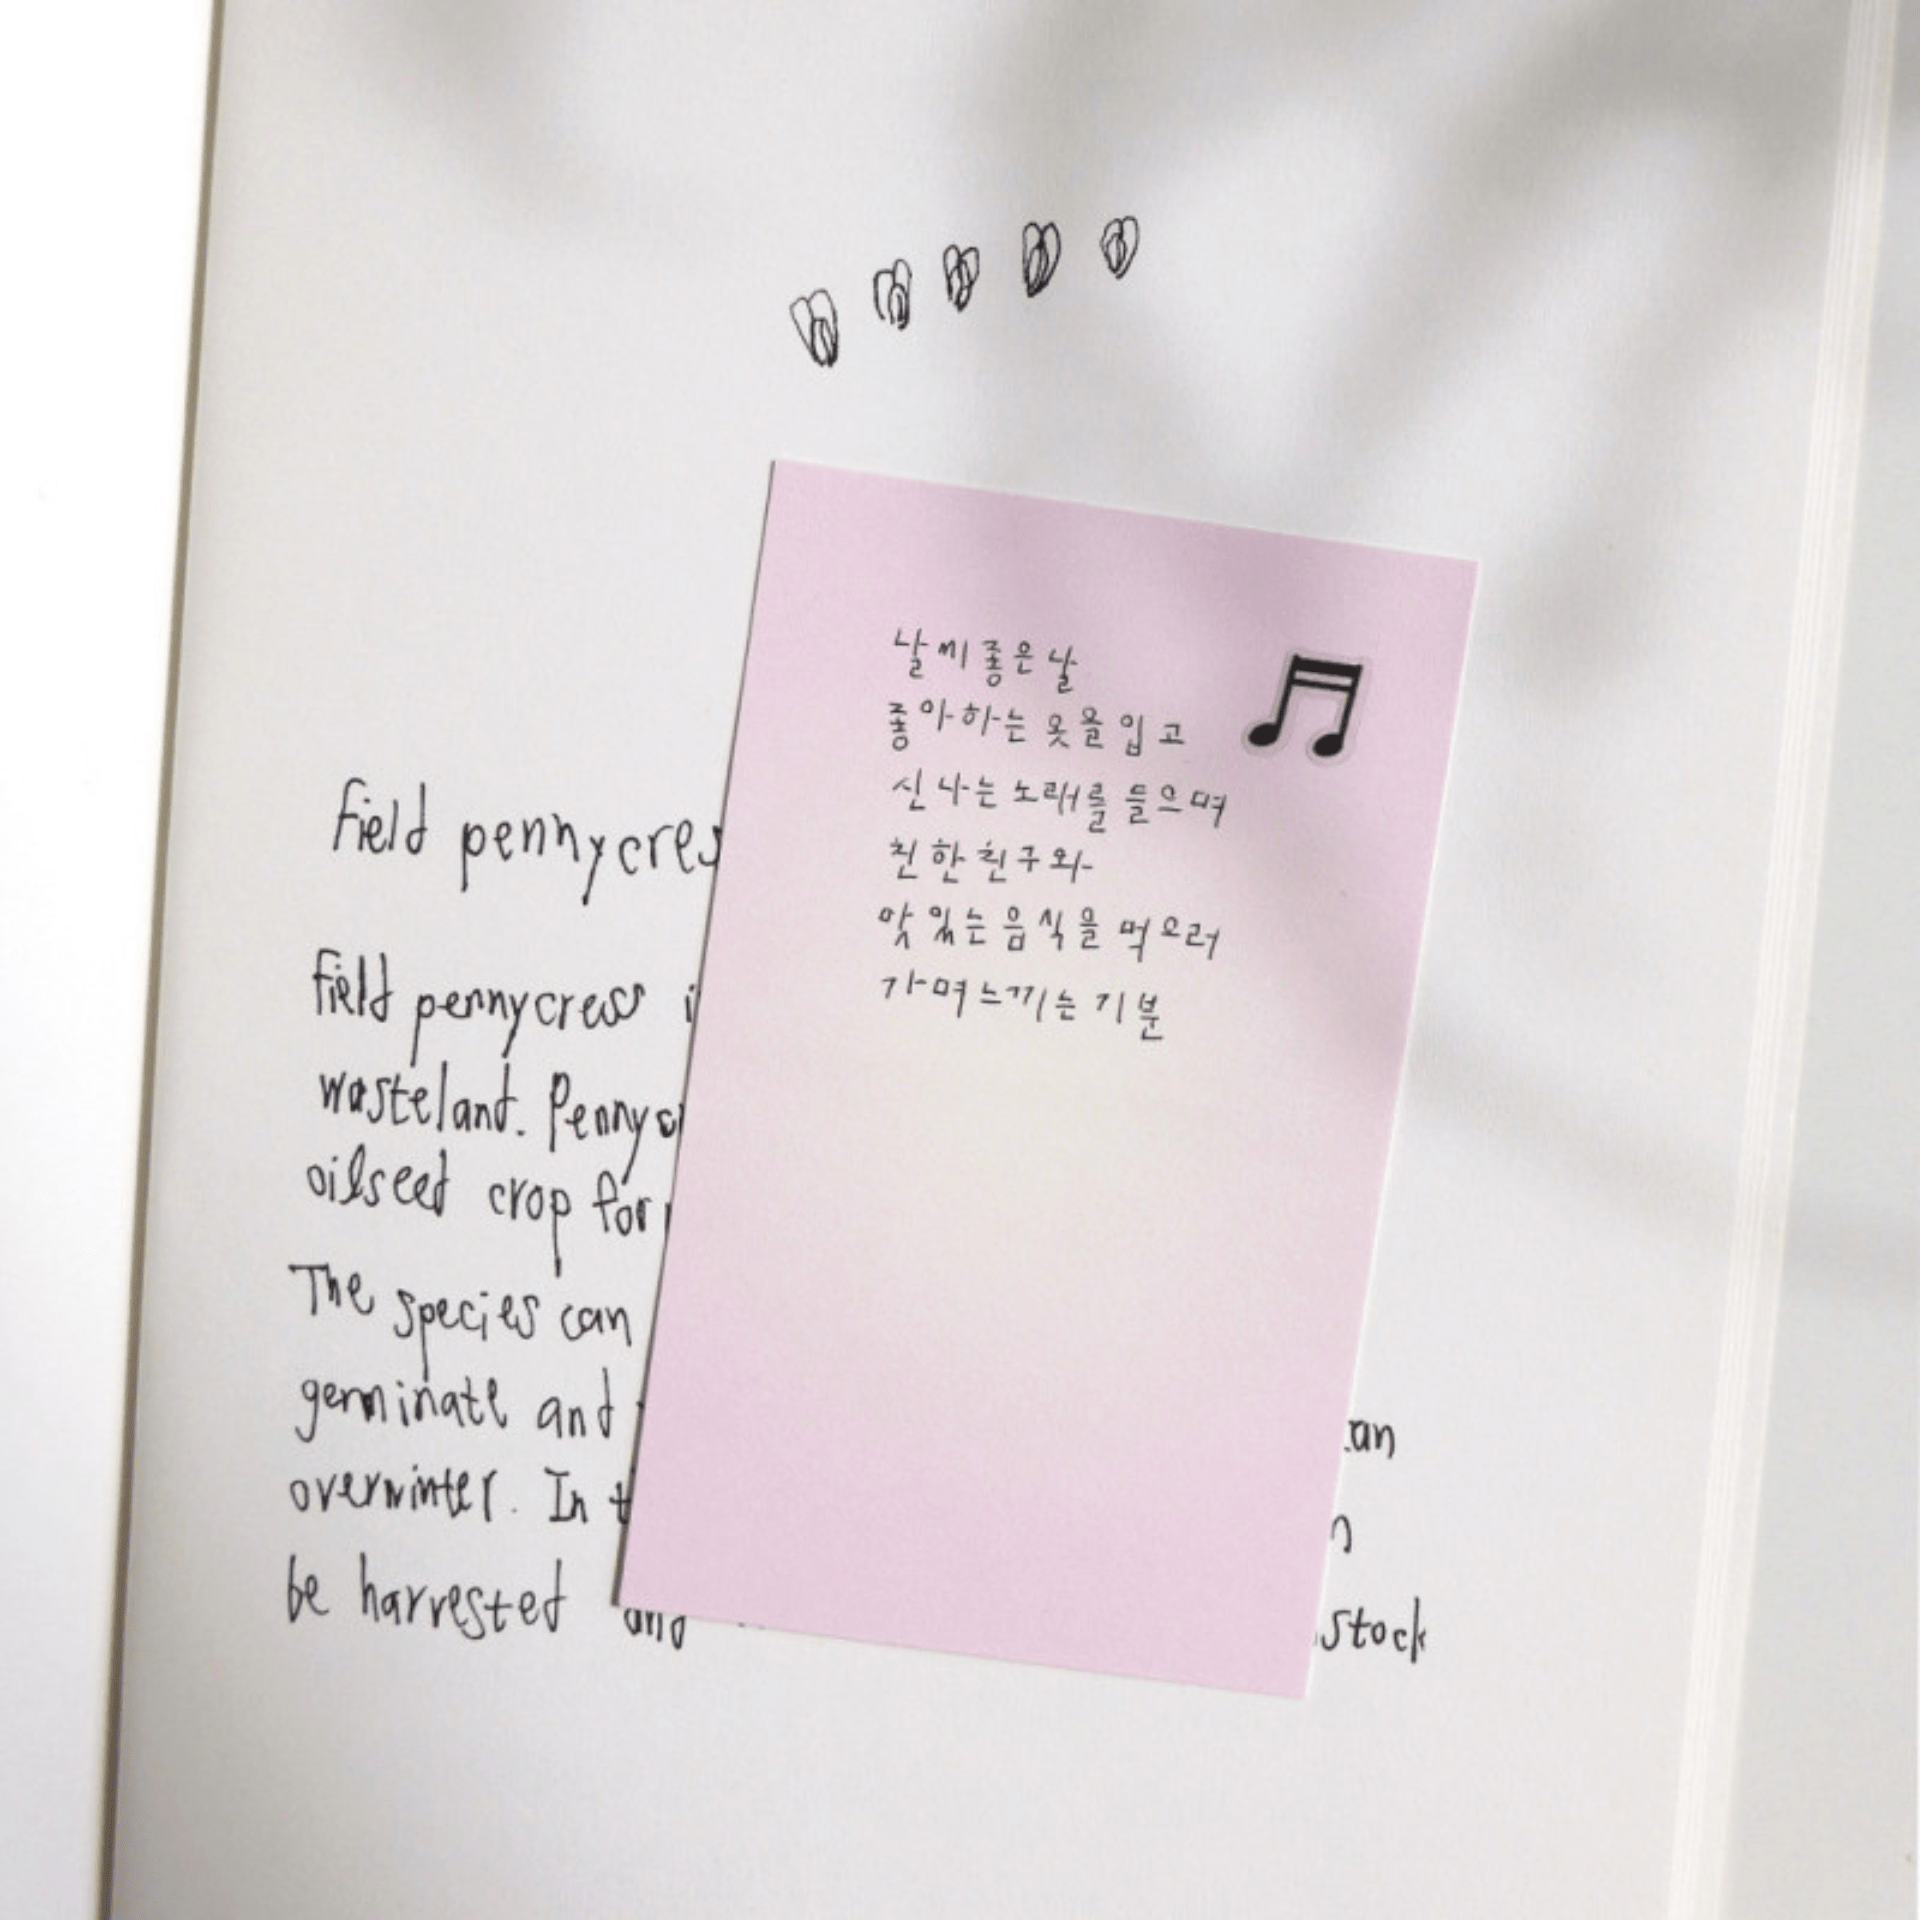 Field pennycres
날씨 좋은 날
좋아하는 옷을 입고
신나는 노래를 들으며
친한 친구와
맛있는 음식을 먹으러
가며 느끼는 기분
Field pennycress i
wasteland. Pennyc
oilseed crop for
The species can
germinate and
an
overwinter. In t
n
be harvested and
stock